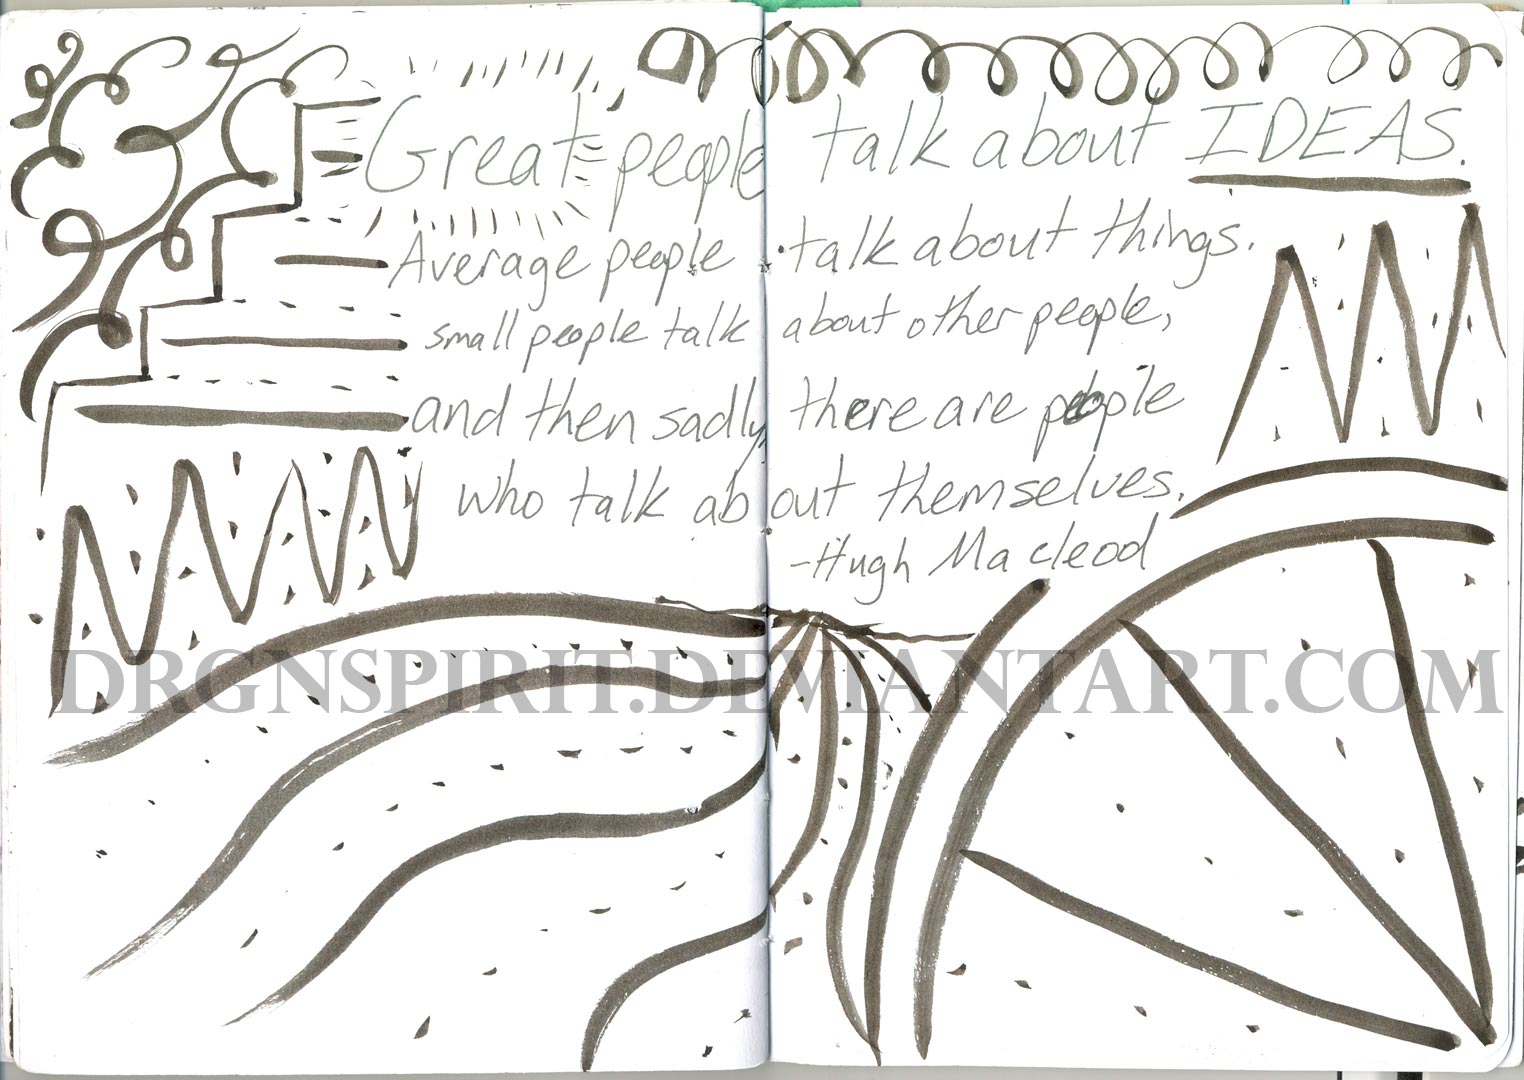 Great people talk about IDEAS.
Average people talk about things.
small people talk about other people,
and then sadly, there are people
who talk about themselves.
-Hugh Macleod
DRGNSPIRIT.DEVIANTART.COM